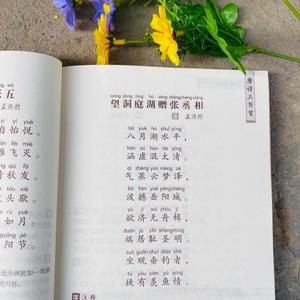 五
孟浩然
自怡悦。
雁飞灭。
清秋发。
头歇。
阳节。
唐诗三百首
wàng dòng tíng hú zèng zhāng chéng xiàng
望洞庭湖赠张丞相
唐 孟浩然
bā yuè hú shuǐ píng
八月湖水平，
hán xū hùn tài qīng
涵虚混太清。
qì zhēng yún mèng zé
气蒸云梦泽，
bō hàn yuè yáng chéng
波撼岳阳城。
yù jì wú zhōu jí
欲济无舟楫，
duān jū chǐ shèng míng
端居耻圣明。
zuò guān chuí diào zhě
坐观垂钓者，
tú yǒu xiàn yú qíng
徒有羡鱼情。
注释